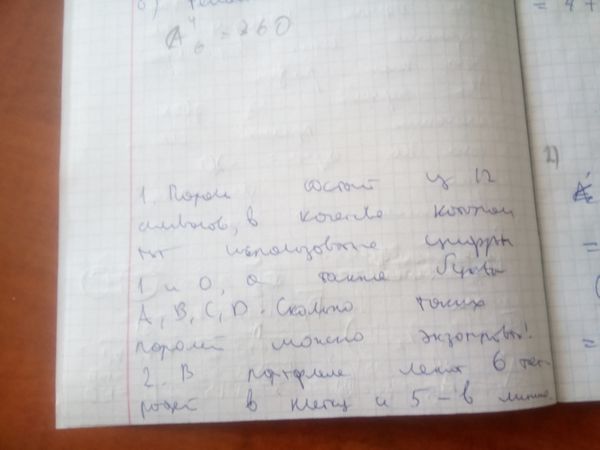 б)
= 4 +
A⁴₆ = 360
1. Пароль состоит из 12
символов, в качестве которых
использованы цифры
1 и 0, а также буквы
A, B, C, D. Сколько таких
паролей можно
2. В портфеле лежат 6 тет-
радей в клетку и 5 - в линию.
2)
A
=
=